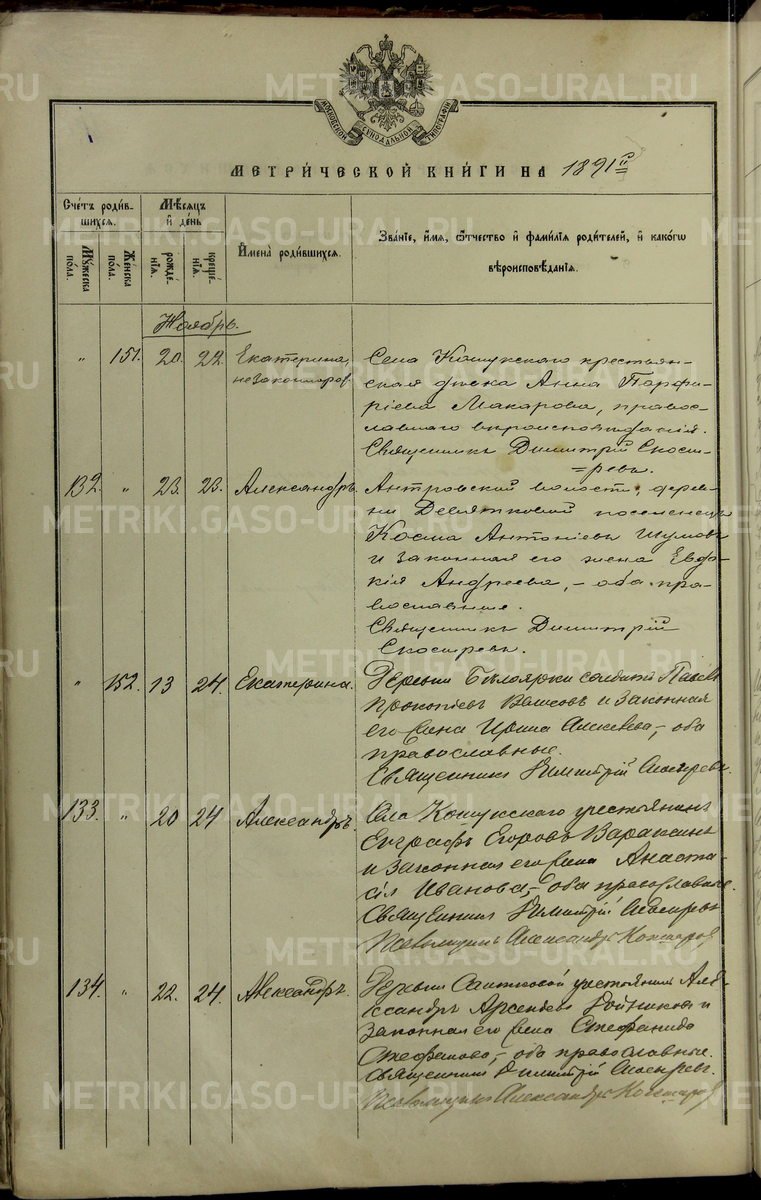 МОСКОВСКОЙ СѴНОДАЛЬНОЙ ТИПОГРАФІИ
МЕТРИ́ЧЕСКОЙ КНИ́ГИ НА 1891 г
Сче́тъ роди́в-
шихся.
Мꙋ́жеска
по́ла.
Же́нска
по́ла.
Мѣ́сяцъ
и҆ де́нь
рожде́-
нїѧ.
креще́-
нїѧ.
И҆мена̀ роди́вшихсѧ.
Зва́нїе, и҆́мѧ, ѻ҆́тчество и҆ фами́лїѧ роди́телей, и҆ како́гѡ
вѣроисповѣ́данїѧ.
Ноябрь.
" 151. 20. 22. Екатерина, Села Кошукского крестьян-
незаконнорож. ская дѣвка Анна Парфи-
ріева Макарова, право-
славнаго вѣроисповѣданія.
Священникъ Димитрій Скос-
=ревъ.
132. " 23. 23. Александръ. волости, дерев-
ни поселенецъ
Косма Антоніевъ Шумовъ
и законная его жена Евдо-
кія Андреева, – оба пра-
вославные.
Священникъ Димитрій
" 152. 13 24. Екатерина. Деревни Бѣлоярки Павелъ
Прокопіевъ и законная
его жена Ирина Алексѣева, оба
православные.
Священникъ Димитрій
133. " 20 24 Александръ. Села Кошукскаго крестьянинъ
Евграфъ Егоровъ Варакинъ
и законная его жена Анаста-
сія Иванова, – оба православные.
Священникъ Димитрій
Псаломщикъ Александръ
134. " 22. 24. Александръ. Деревни крестьянинъ Але-
ксандръ Арсеніевъ и
законная его жена Стефанида
Стефанова, – оба православные.
Священникъ Димитрій
Псаломщикъ Александръ
METRIKI.GASO-URAL.RU